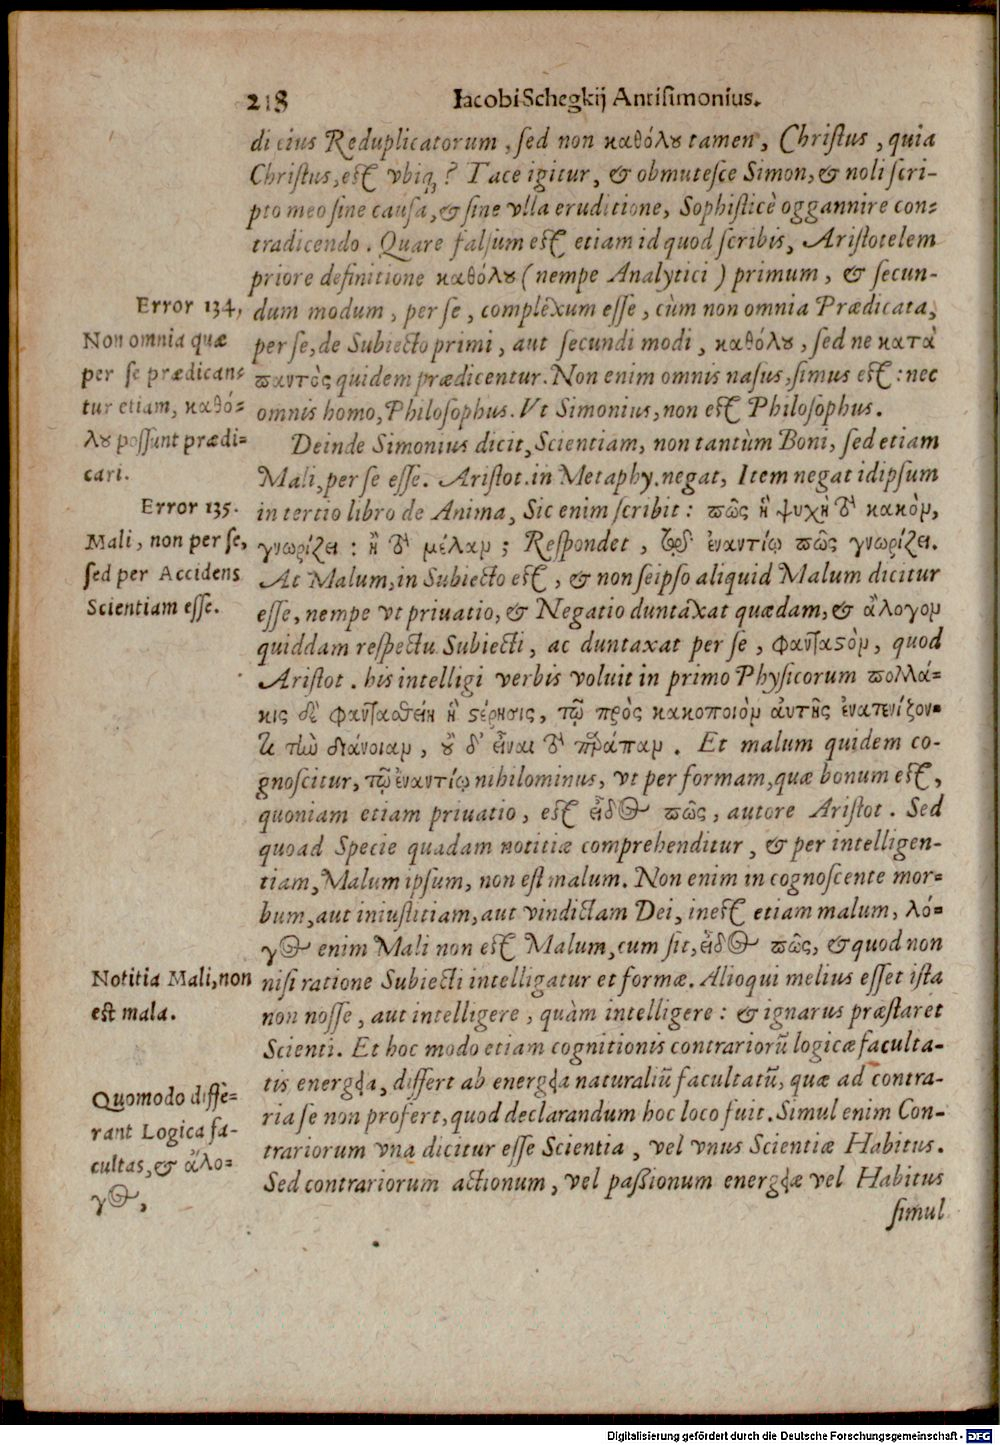 218 Iacobi Schegkij Antisimonius.
di eius Reduplicatorum, sed non καθόλȣ tamen, Christus, quia
Christus, est vbiq;? Tace igitur, & obmutesce Simon, & noli scri-
pto meo sine causa, & sine vlla eruditione, Sophisticè oggannire con-
tradicendo. Quare falsum est etiam id quod scribis, Aristotelem
priore definitione καθόλȣ (nempe Analytici) primum, & secun-
dum modum, per se, complexum esse, cùm non omnia Prædicata,
per se, de Subiecto primi, aut secundi modi, καθόλȣ, sed ne κατὰ
παντὸς quidem prædicentur. Non enim omnis nasus, simus est: nec
omnis homo, Philosophus. Vt Simonius, non est Philosophus.
Error 134,
Non omnia quæ
per se prædican-
tur etiam, καθό-
λȣ possunt prædi-
cari.
Deinde Simonius dicit, Scientiam, non tantùm Boni, sed etiam
Mali, per se esse. Aristot. in Metaphy. negat, Item negat idipsum
in tertio libro de Anima, Sic enim scribit: πῶς ἢ ψυχὴ τὸ κακὸν,
γνωρίζει: ἢ τὸ μέλαν; Respondet, τῷ ἐναντίῳ πῶς γνωρίζει.
At Malum, in Subiecto est, & non seipso aliquid Malum dicitur
esse, nempe vt priuatio, & Negatio duntaxat quædam, & ἄλογον
quiddam respectu Subiecti, ac duntaxat per se, φανταστὸν, quod
Aristot. his intelligi verbis voluit in primo Physicorum πολλά-
κις δὲ φανταθείη ἢ στέρησις, τῷ πρὸς κακοποιὸν ἀυτῆς ἐνατενίζον-
τι τὴν διάνοιαν, ȣ̓ δ' εἶναι τὸ παράπαν. Et malum quidem co-
gnoscitur, τῷ ἐναντίῳ nihilominus, vt per formam, quæ bonum est,
quoniam etiam priuatio, est εἶδος πῶς, autore Aristot. Sed
quoad Specie quadam notitiæ comprehenditur, & per intelligen-
tiam, Malum ipsum, non est malum. Non enim in cognoscente mor-
bum, aut iniustitiam, aut vindictam Dei, inest etiam malum, λό-
γος enim Mali non est Malum, cum sit, εἶδος πῶς, & quod non
nisi ratione Subiecti intelligatur et formæ. Alioqui melius esset ista
non nosse, aut intelligere, quàm intelligere: & ignarus præstaret
Scienti. Et hoc modo etiam cognitionis contrariorũ logicæ faculta-
tis energeia, differt ab energeia naturaliũ facultatũ, quæ ad contra-
ria se non profert, quod declarandum hoc loco fuit. Simul enim Con-
trariorum vna dicitur esse Scientia, vel vnus Scientiæ Habitus.
Sed contrariorum actionum, vel passionum energeiæ vel Habitus
simul
Error 135.
Mali, non per se,
sed per Accidens
Scientiam esse.
Notitia Mali, non
est mala.
Quomodo diffe-
rant Logica fa-
cultas, & ἄλο-
γος,
Digitalisierung gefördert durch die Deutsche Forschungsgemeinschaft - DFG